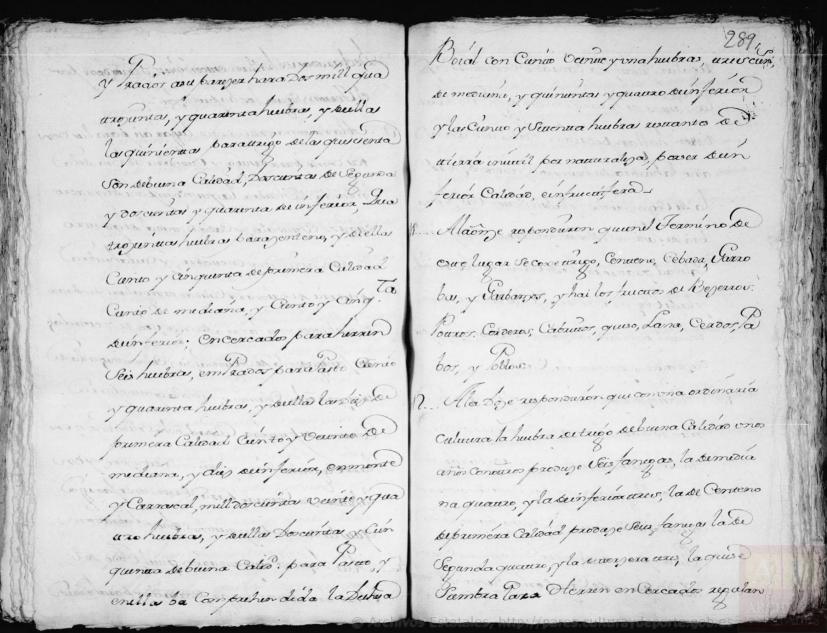 y Prados a su parezer hara Dos mill qua
trozientas, y quarenta huebras, y de ellas
las quinientas para trigo de las que sesenta
son de buena Calidad, Doscientas de segunda
y doscientas y quarenta de inferior, Qua
trozientas huebras para zenteno, y de ellas
Ciento y cinquenta de primera Calidad
Ciento de mediana, y Ciento y cinq.ta
de inferior; en cercados para herren
seis huebras, en Prados para Pasto Ciento
y quarenta huebras, y de ellas las diez de
primera Calidad Ciento y veinte de
mediana, y diez de inferior, en monte
y Carrascal, mill doscientas veinte y qua
tro huebras, y de ellas Doscientas y Cin
quenta de buena Calid. para Pasto, y
en ellas ba Comprehendida la Dehesa
289
Boial con Ciento veinte y una huebras, trescien.
de mediana, y quinientas y quattro de inferior
y las Ciento y Setenta huebras restantes de
tierra inutil por naturaleza, por ser de in
ferior Calidad, e infructifera
11... A la onze respondieron que en el Termino de
este lugar se coxe trigo, Centeno, Cebada, Garro
bas, y Garbanzos, y hai los fructos de Bezerros,
Potros, Corderos, Cabritos, queso, Lana, Cerdos, Pa
bos, y Pollos
12... A la Doze respondieron que con una ordinaria
cultura la huebra de trigo de buena Calidad unos
años con otros produze Seis fanegas, la de media
na quatro, y la de inferior tres, la de Centeno
de primera Calidad produze Seis fanegas la de
Segunda quatro, y la de terzera tres, la que se
Siembra para Herren en Cercados regulan
© Archivos Estatales,